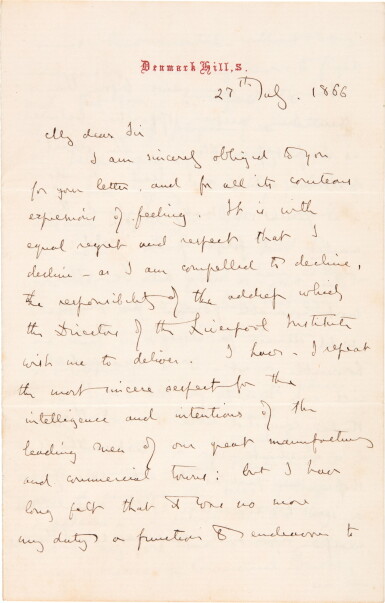 Denmark Hill, S.
27th July. 1866
My dear Sir
I am sincerely obliged to you
for your letter, and for all its courteous
expressions of feeling. It is with
equal regret and respect that I
decline - as I am compelled to decline,
the responsibility of the address which
the Directors of the Liverpool Institute
wish me to deliver. I have - I repeat
the most sincere respect for the
intelligence and intentions of the
leading men of our great manufacturing
and commercial towns: but I have
long felt that it was no more
my duty or function to endeavour to